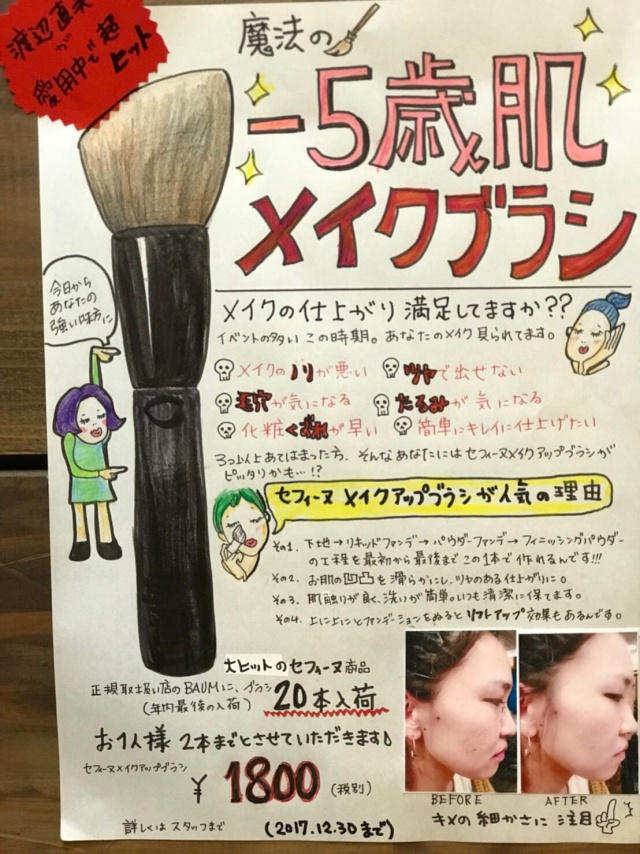 渡辺直美
が
愛用中で超
ヒット
魔法の
-5歳肌
メイクブラシ
今日から
あなたの
強い味方に
メイクの仕上がり満足してますか??
イベントの多いこの時期。あなたのメイク見られてます。
メイクのノリが悪い
ツヤで出せない
毛穴が気になる
たるみが気になる
化粧くずれが早い
簡単にキレイに仕上げたい
3つ以上あてはまった方、そんなあなたにはセフィーヌメイクアップブラシが
ピッタリかも…!?
セフィーヌ メイクアップブラシが人気の理由
その1. 下地→リキッドファンデ→パウダーファンデ→フィニッシングパウダー
の工程を最初から最後までこの1本で作れるんです!!!
その2. お肌の凹凸を滑らかにし、ツヤのある仕上がりに。
その3. 肌触りが良く、洗いが簡単。いつも清潔に保てます。
その4. 上に上にとファンデーションをぬるとリフトアップ効果もあるんです。
大ヒットのセフィーヌ商品
正規取り扱い店のBAUMに、ブラシ
(年内最後の入荷)
20本入荷
お1人様 2本までとさせていただきます
セフィーヌメイクアップブラシ
¥1800(税別)
詳しくはスタッフまで
(2017.12.30まで)
BEFORE
AFTER
キメの細かさに注目